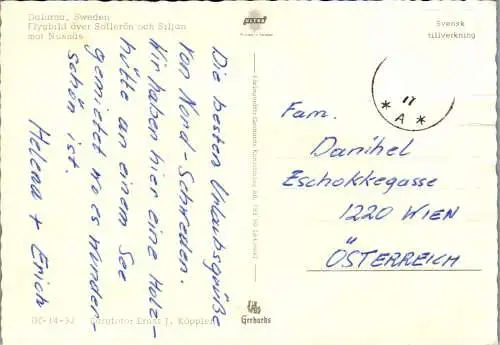 Dalarna, Sweden
Flygbild över Sollerön och Siljan
mot Nusnäs
Svensk
tillverkning
Die besten Urlaubsgrüße
von Nord-Schweden.
Wir haben hier eine Holz-
hütte an einem See
gemietet wo es wunder-
schön ist.
Helena + Erich
17
* A *
Fam.
Danihel
Eschokkegasse
1220 WIEN
ÖSTERREICH
Ernst J. Köppler
Gerhards